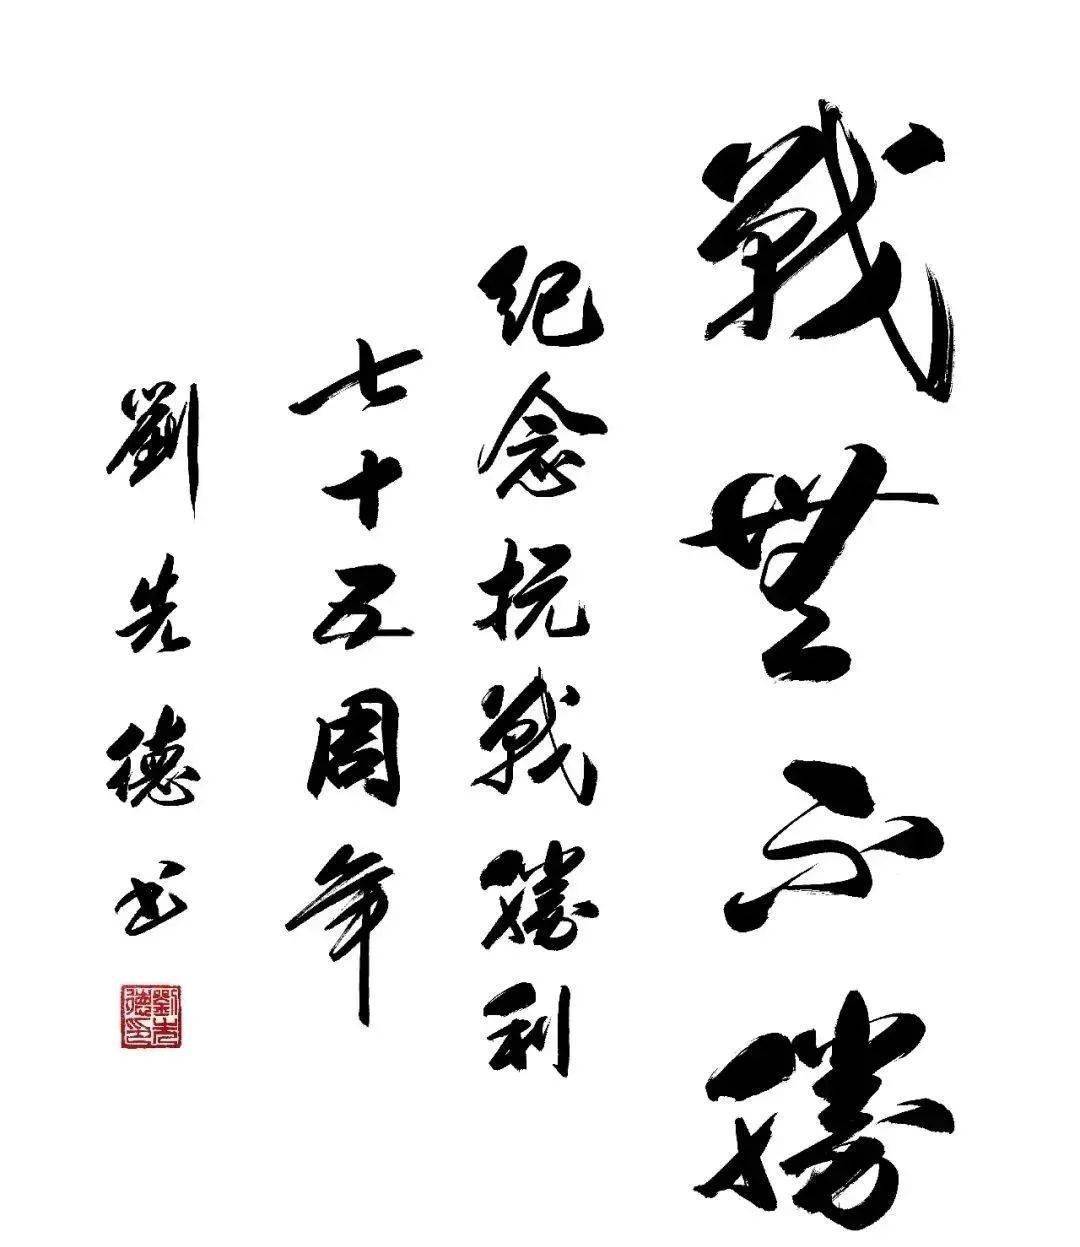 戰無不勝
紀念抗戰勝利
七十五周年
劉先德书
劉先德印